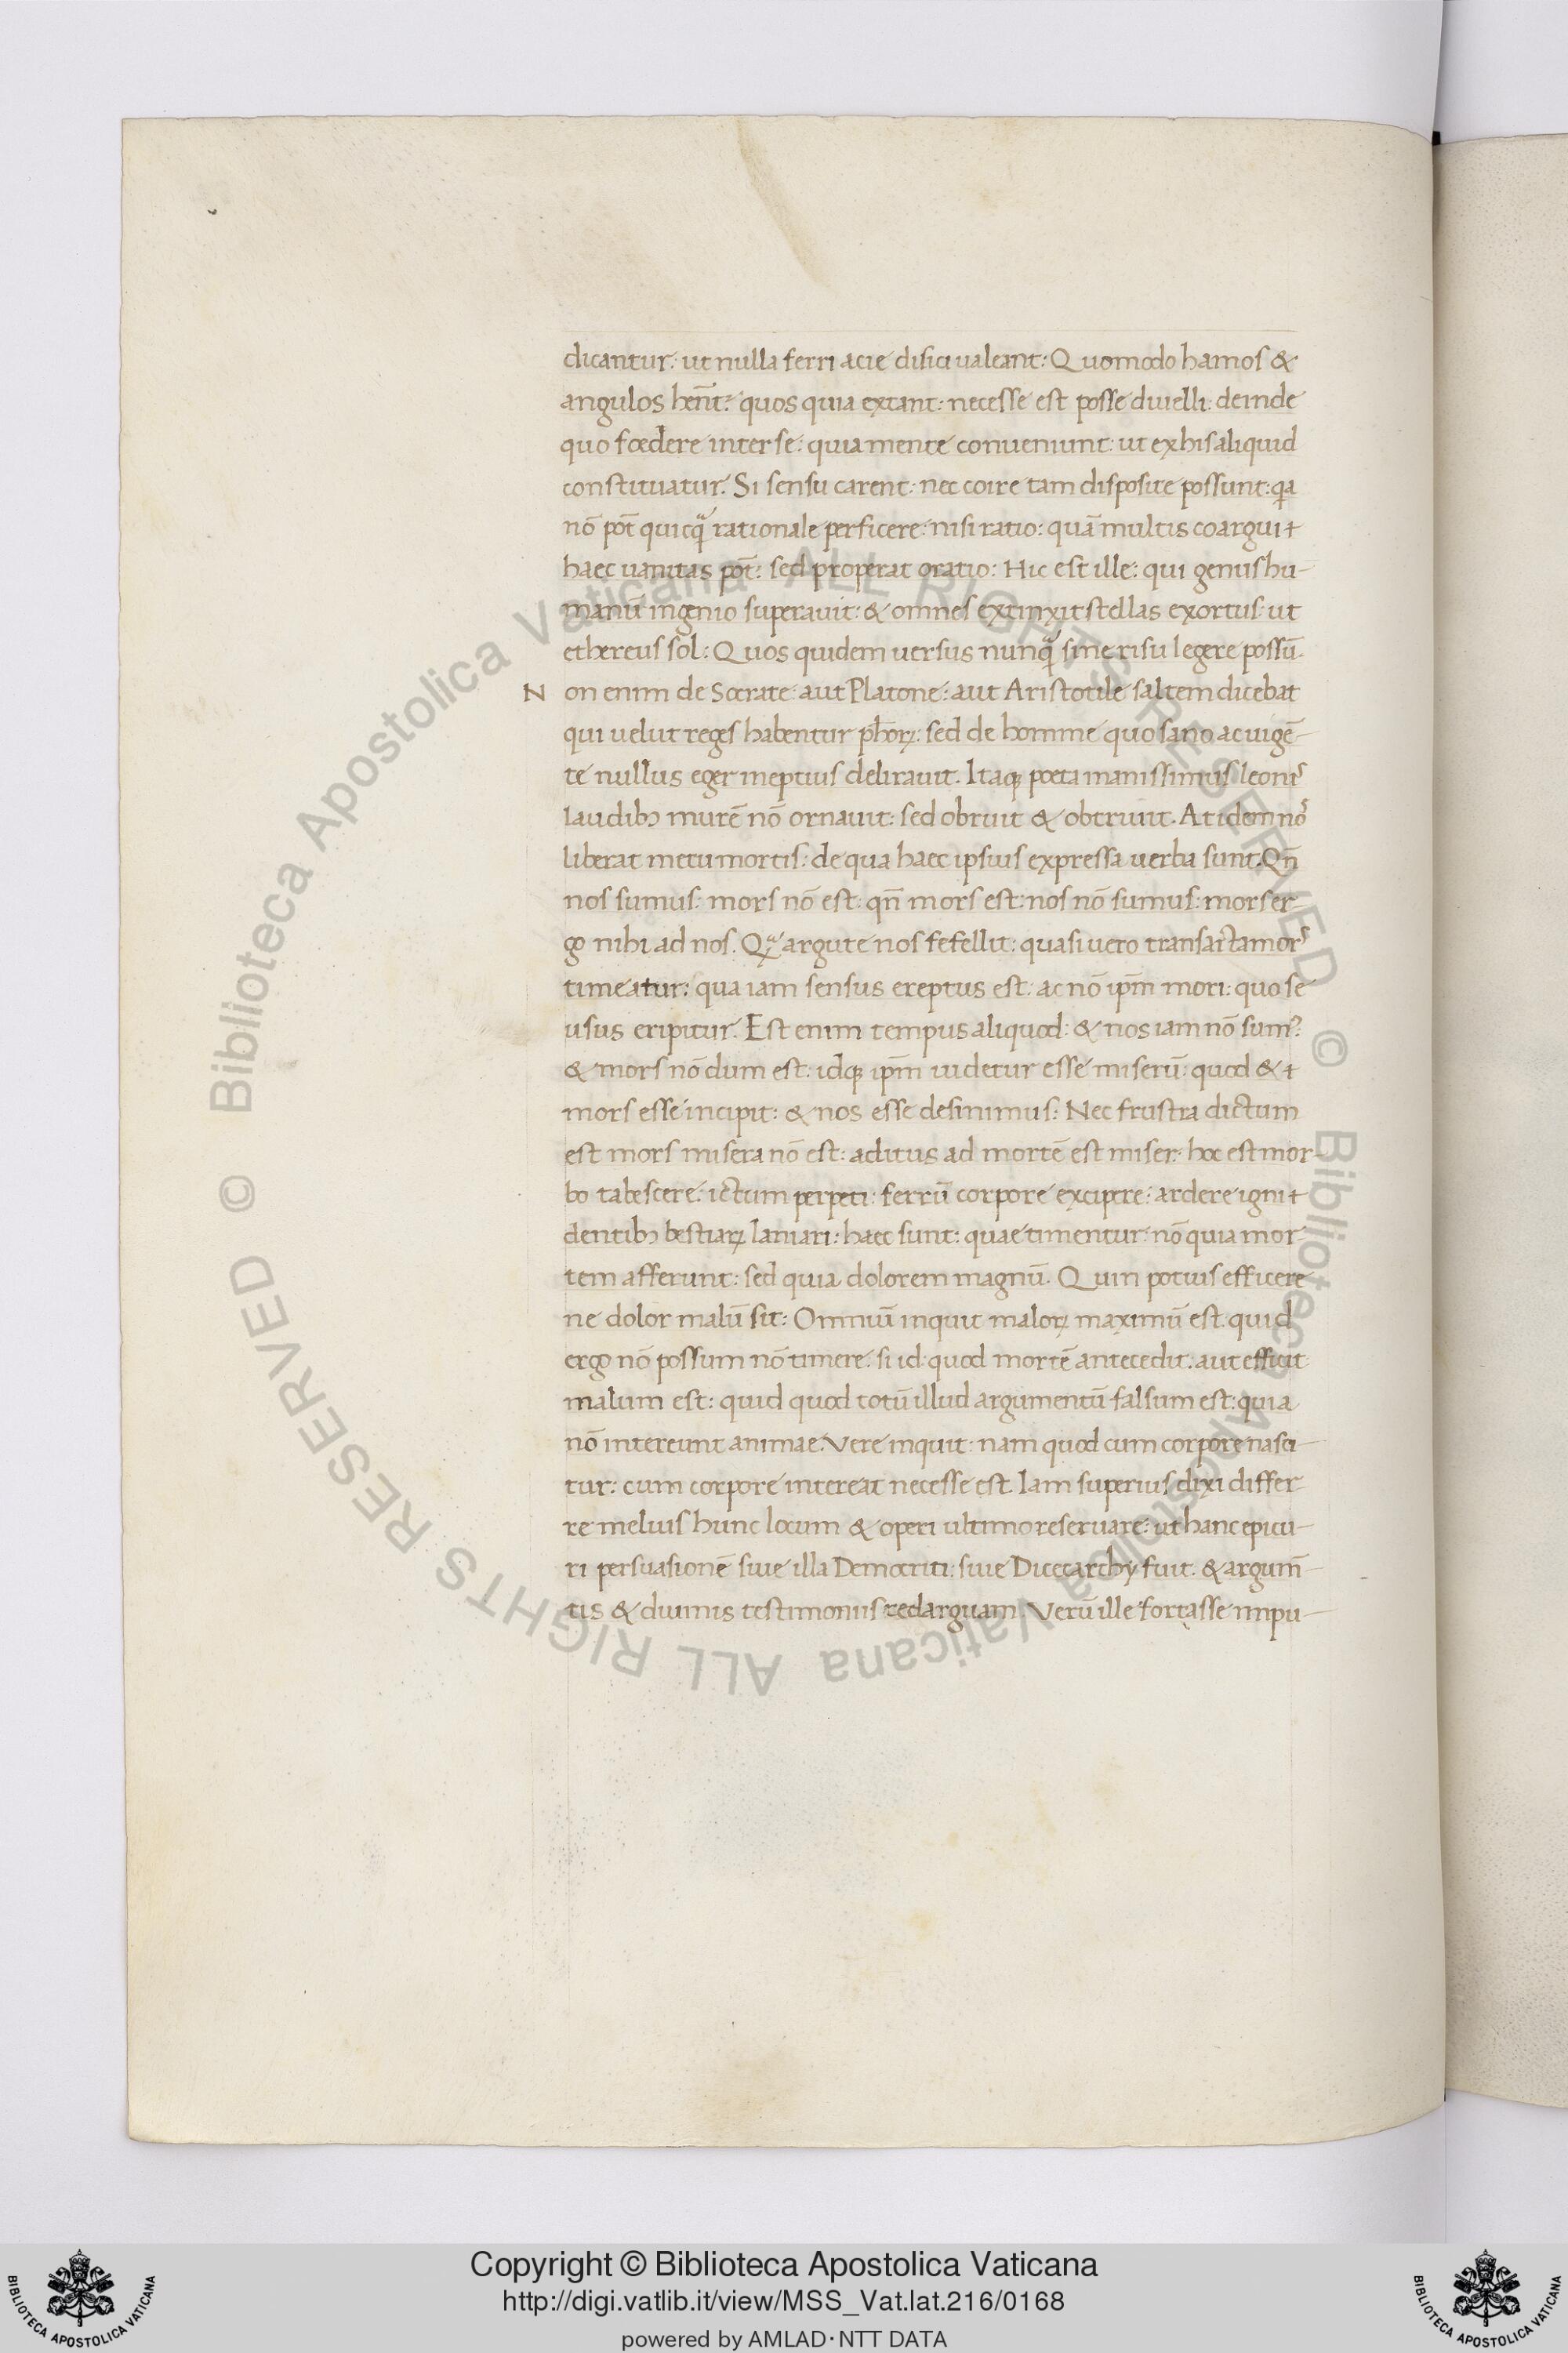 dicantur: ut nulla ferri acie disici ualeant: Quomodo hamos &
angulos hen̄t: quos quia extant: necesse est posse diuelli: deinde
quo foedere inter se: quia mente conueniunt: ut ex his aliquid
constituatur. Si sensu carent: nec coire tam disposite possunt: qa
nō pōt quicqᷓ rationale perficere: nisi ratio: quā multis coargui
haec uanitas pōt: sed properat oratio: Hic est ille: qui genus hu-
manū ingenio superauit: & omnes extinxit stellas exortus ut
ethereus sol: Quos quidem uersus nunqᷓ sine risu legere possū.
Non enim de Socrate aut Platone: aut Aristotile saltem dicebat
qui uelut reges habentur ph̄orꝝ: sed de homine quo sano ac uigē-
te nullus eger ineptius delirauit. Itaqꝫ poeta inanissimus leonis
laudibꝫ murē nō ornauit: sed obruit & obtriuit. At idem nos
liberat metu mortis: de qua haec ipsius expressa uerba sunt. Qn̄
nos sumus: mors nō est: qn̄ mors est: nos nō sumus: mors er-
go nihi ad nos. Qᷓ argute nos fefellit: quasi uero transacta mors
timeatur: qua iam sensus ereptus est: ac nō ip̄m mori: quo se
usus eripitur. Est enim tempus aliquod: & nos iam nō sumꝰ
& mors nō dum est: idqꝫ ip̄m uidetur esse miserū: quod &
mors esse incipit: & nos esse desinimus: Nec frustra dictum
est mors misera nō est: aditus ad mortē est miser: hoc est mor-
bo tabescere: ictum perpeti: ferrū corpore excipere: ardere igni
dentibꝫ bestiarꝝ laniari: haec sunt: quae timentur: nō quia mor-
tem afferunt: sed quia dolorem magnū. Quin potius efficere
ne dolor malū sit: Omniū inquit malorꝝ maximū est. quid
ergo nō possum nō timere: si id quod mortē antecedit: aut efficit
malum est: quid quod totū illud argumentū falsum est: quia
nō intereunt animae. Vere inquit: nam quod cum corpore nasci-
tur: cum corpore intereat necesse est. Iam superius dixi differ-
re melius hunc locum & operi ultimo reseruare: ut hanc epicu-
ri persuasionē siue illa Democriti: siue Dicecarchy fuit. & argum̄-
tis & diuinis testimoniis redarguam. Verū ille fortasse impu-
Copyright © Biblioteca Apostolica Vaticana
http://digi.vatlib.it/view/MSS_Vat.lat.216/0168
powered by AMLAD·NTT DATA
© Biblioteca Apostolica Vaticana ALL RIGHTS RESERVED
© Biblioteca Apostolica Vaticana ALL RIGHTS RESERVED
BIBLIOTECA APOSTOLICA VATICANA
BIBLIOTECA APOSTOLICA VATICANA